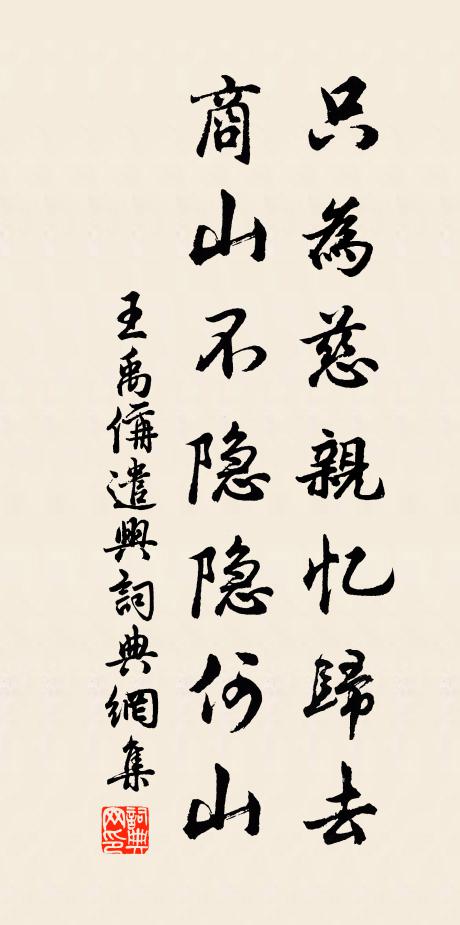 只為慈親忆歸去
商山不隐隐何山
王禹偁遣興詞典網集
詞典網印